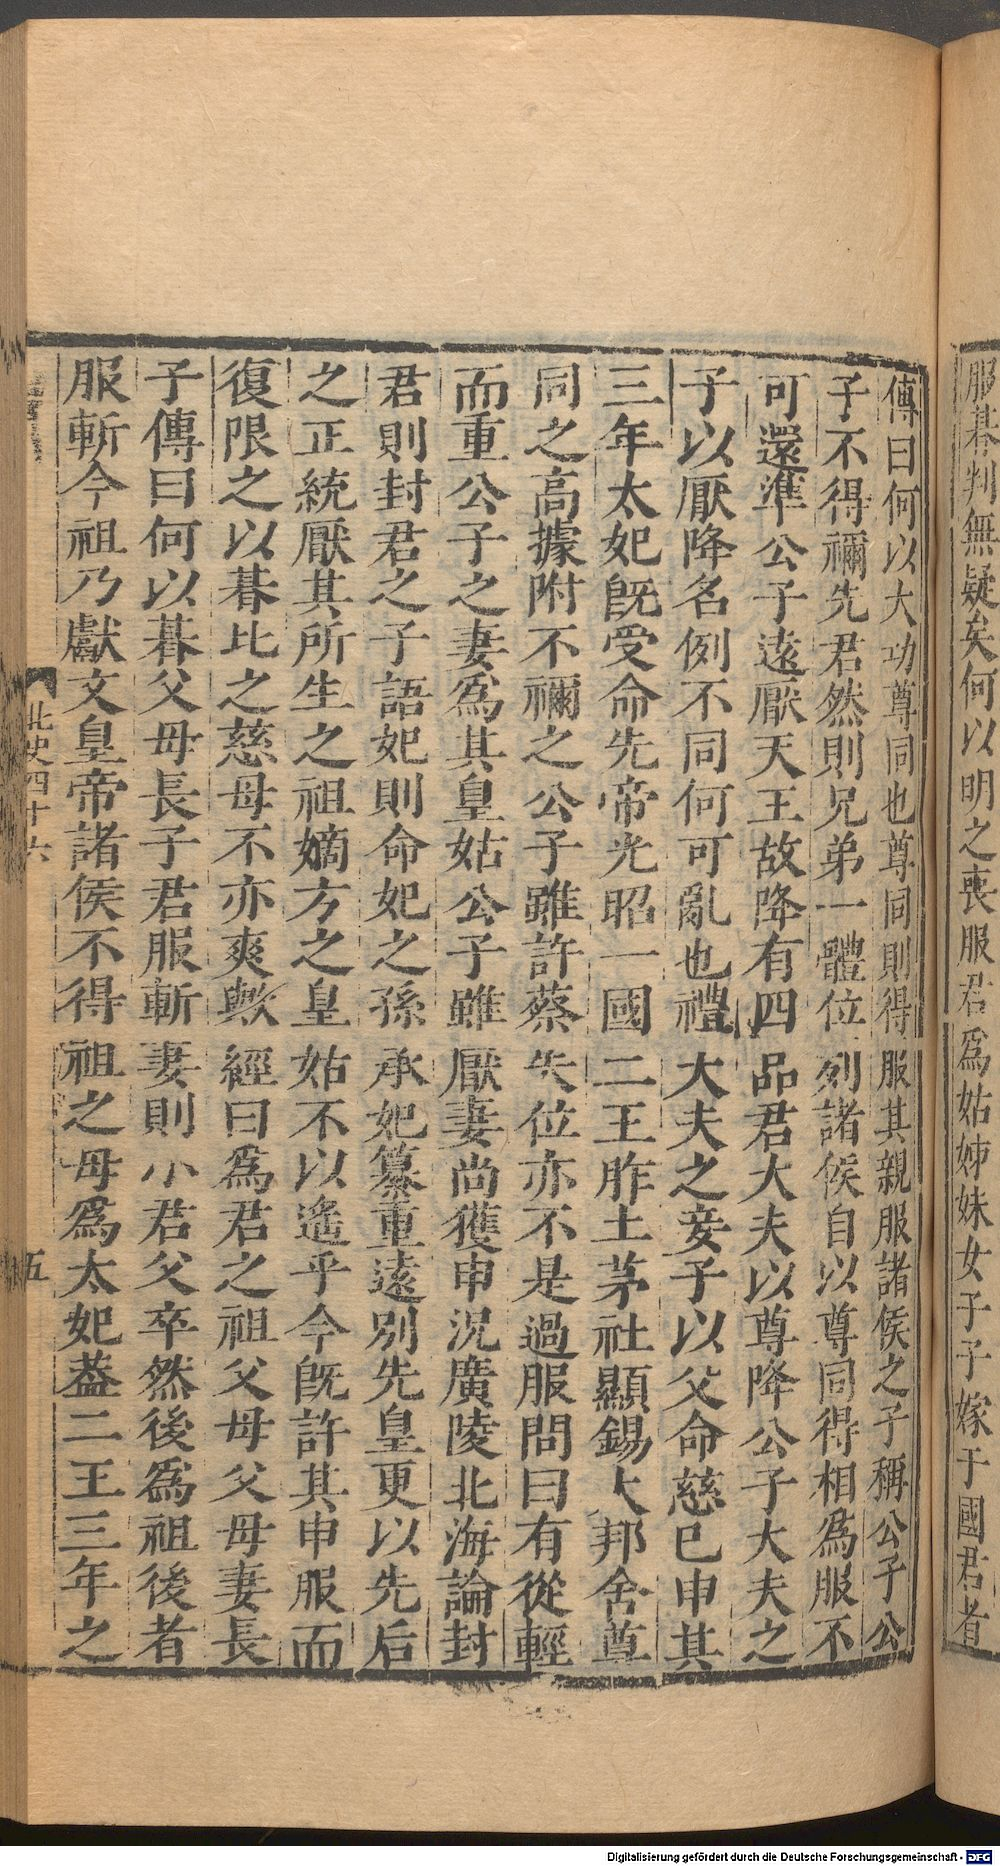 服朞判無疑矣何以明之喪服君爲姑姊妹女子子嫁于國君者
傳曰何以大功尊同也尊同則得服其親服諸侯之子稱公子公
子不得禰先君然則兄弟一體位列諸侯自以尊同得相爲服不
可還準公子遠厭天王故降有四品君大夫以尊降公子大夫之
子以厭降名例不同何可亂也禮大夫之妾子以父命慈已申其
三年太妃旣受命先帝光昭一國二王胙土茅社顯錫大邦舍尊
同之高據附不禰之公子雖許蔡失位亦不是過服問曰有從輕
而重公子之妻爲其皇姑公子雖厭妻尚獲申況廣陵北海論封
君則封君之子語妃則命妃之孫承妃纂重遠別先皇更以先后
之正統厭其所生之祖嫡方之皇姑不以遙乎今旣許其申服而
復限之以朞比之慈母不亦爽歟經曰爲君之祖父母父母妻長
子傳曰何以朞父母長子君服斬妻則小君父卒然後爲祖後者
服斬今祖乃獻文皇帝諸侯不得祖之母爲太妃葢二王三年之
北史四十六
五
Digitalisierung gefördert durch die Deutsche Forschungsgemeinschaft - DFG